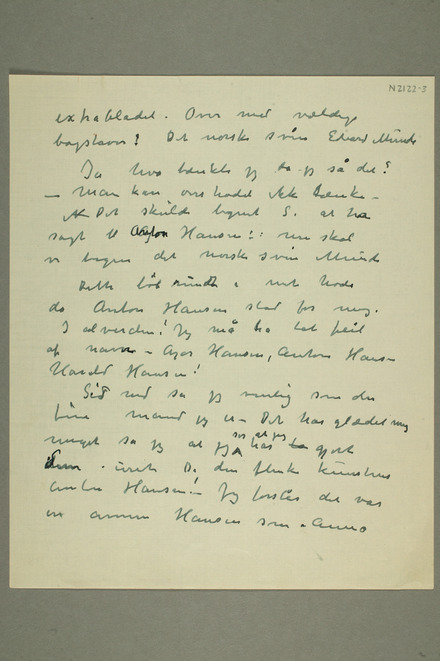 N 2122-3
extrabladet. Over med vældige
bogstaver? Det norske svin Edvard Munch
Ja hva tænkte jeg da jeg så det?
– Man kan overhodet ikke tænke –
Det skulde begynt S. at ha
sagt til Anton Hansen: nu skal
vi begynne det norske svin Munch
Dette løb rundt i mit hode
da Anton Hansen stod for meg.
I alverden! Jeg må ha tat feil
af navn – Hansen, Anton Hansen
Harald Hansen!
Sid ned sa jeg venlig som den
fine mand jeg er – Det har glædet mig
meget sa jeg at jeg har gjort
De den flinke kunstner
Anton Hansen! – Jeg forstår det var
en annen Hansen som